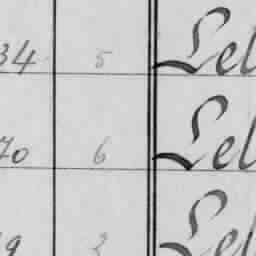 34 5 Lel
70 6 Lel
9 Lel